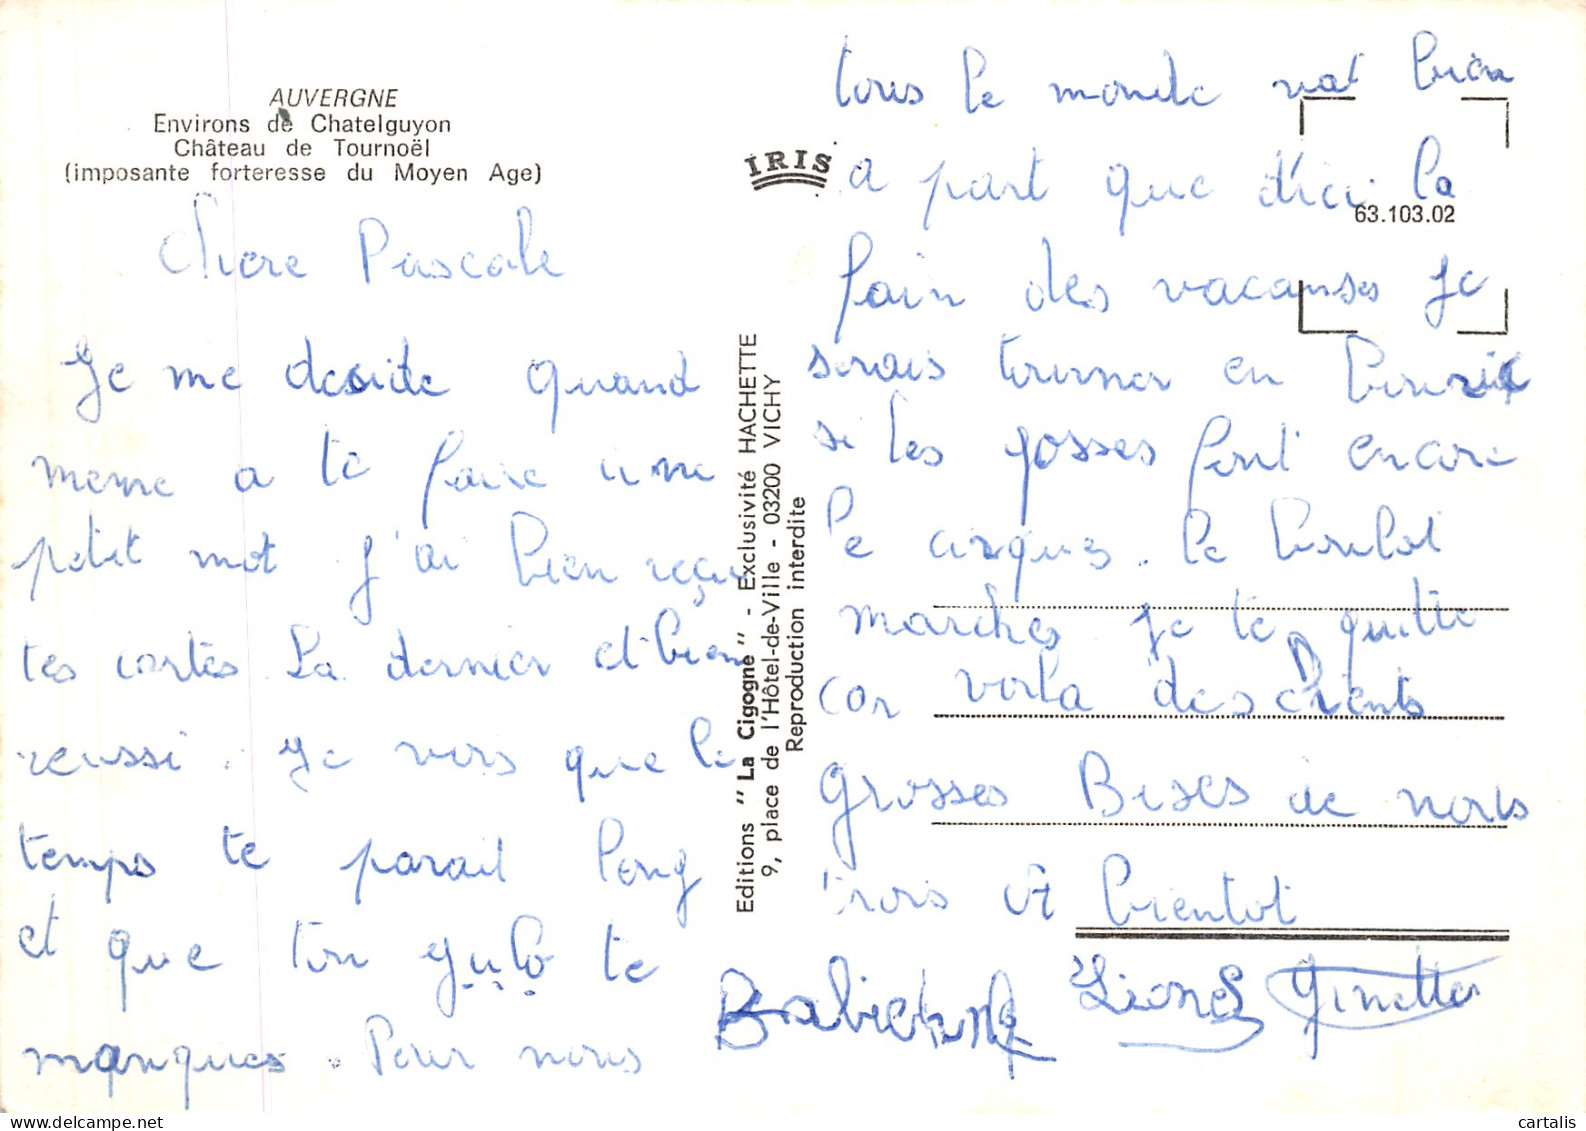 AUVERGNE
Environs de Chatelguyon
Château de Tournoël
(imposante forteresse du Moyen Age)
Chere Pascale
Je me decide quand
meme a te faire une
petit mot j'ai bien reçu
tes cartes la dernier et bien
reussi. Je vois que le
temps te parait long
et que ton gulo te
manques. Pour nous
IRIS
63.103.02
Editions "La Cigogne" - Exclusivité HACHETTE
9, place de l'Hôtel-de-Ville - 03200 VICHY
Reproduction interdite
tous le monde vat bien
a part que d'ici la
fain des vacanses je
serais tourner en
si les gosses font encore
le cirques. le boulot
marches je te quitte
car voila des clients
grosses Bises de nous
trois A bientot
Lionel Ginette
cartalis